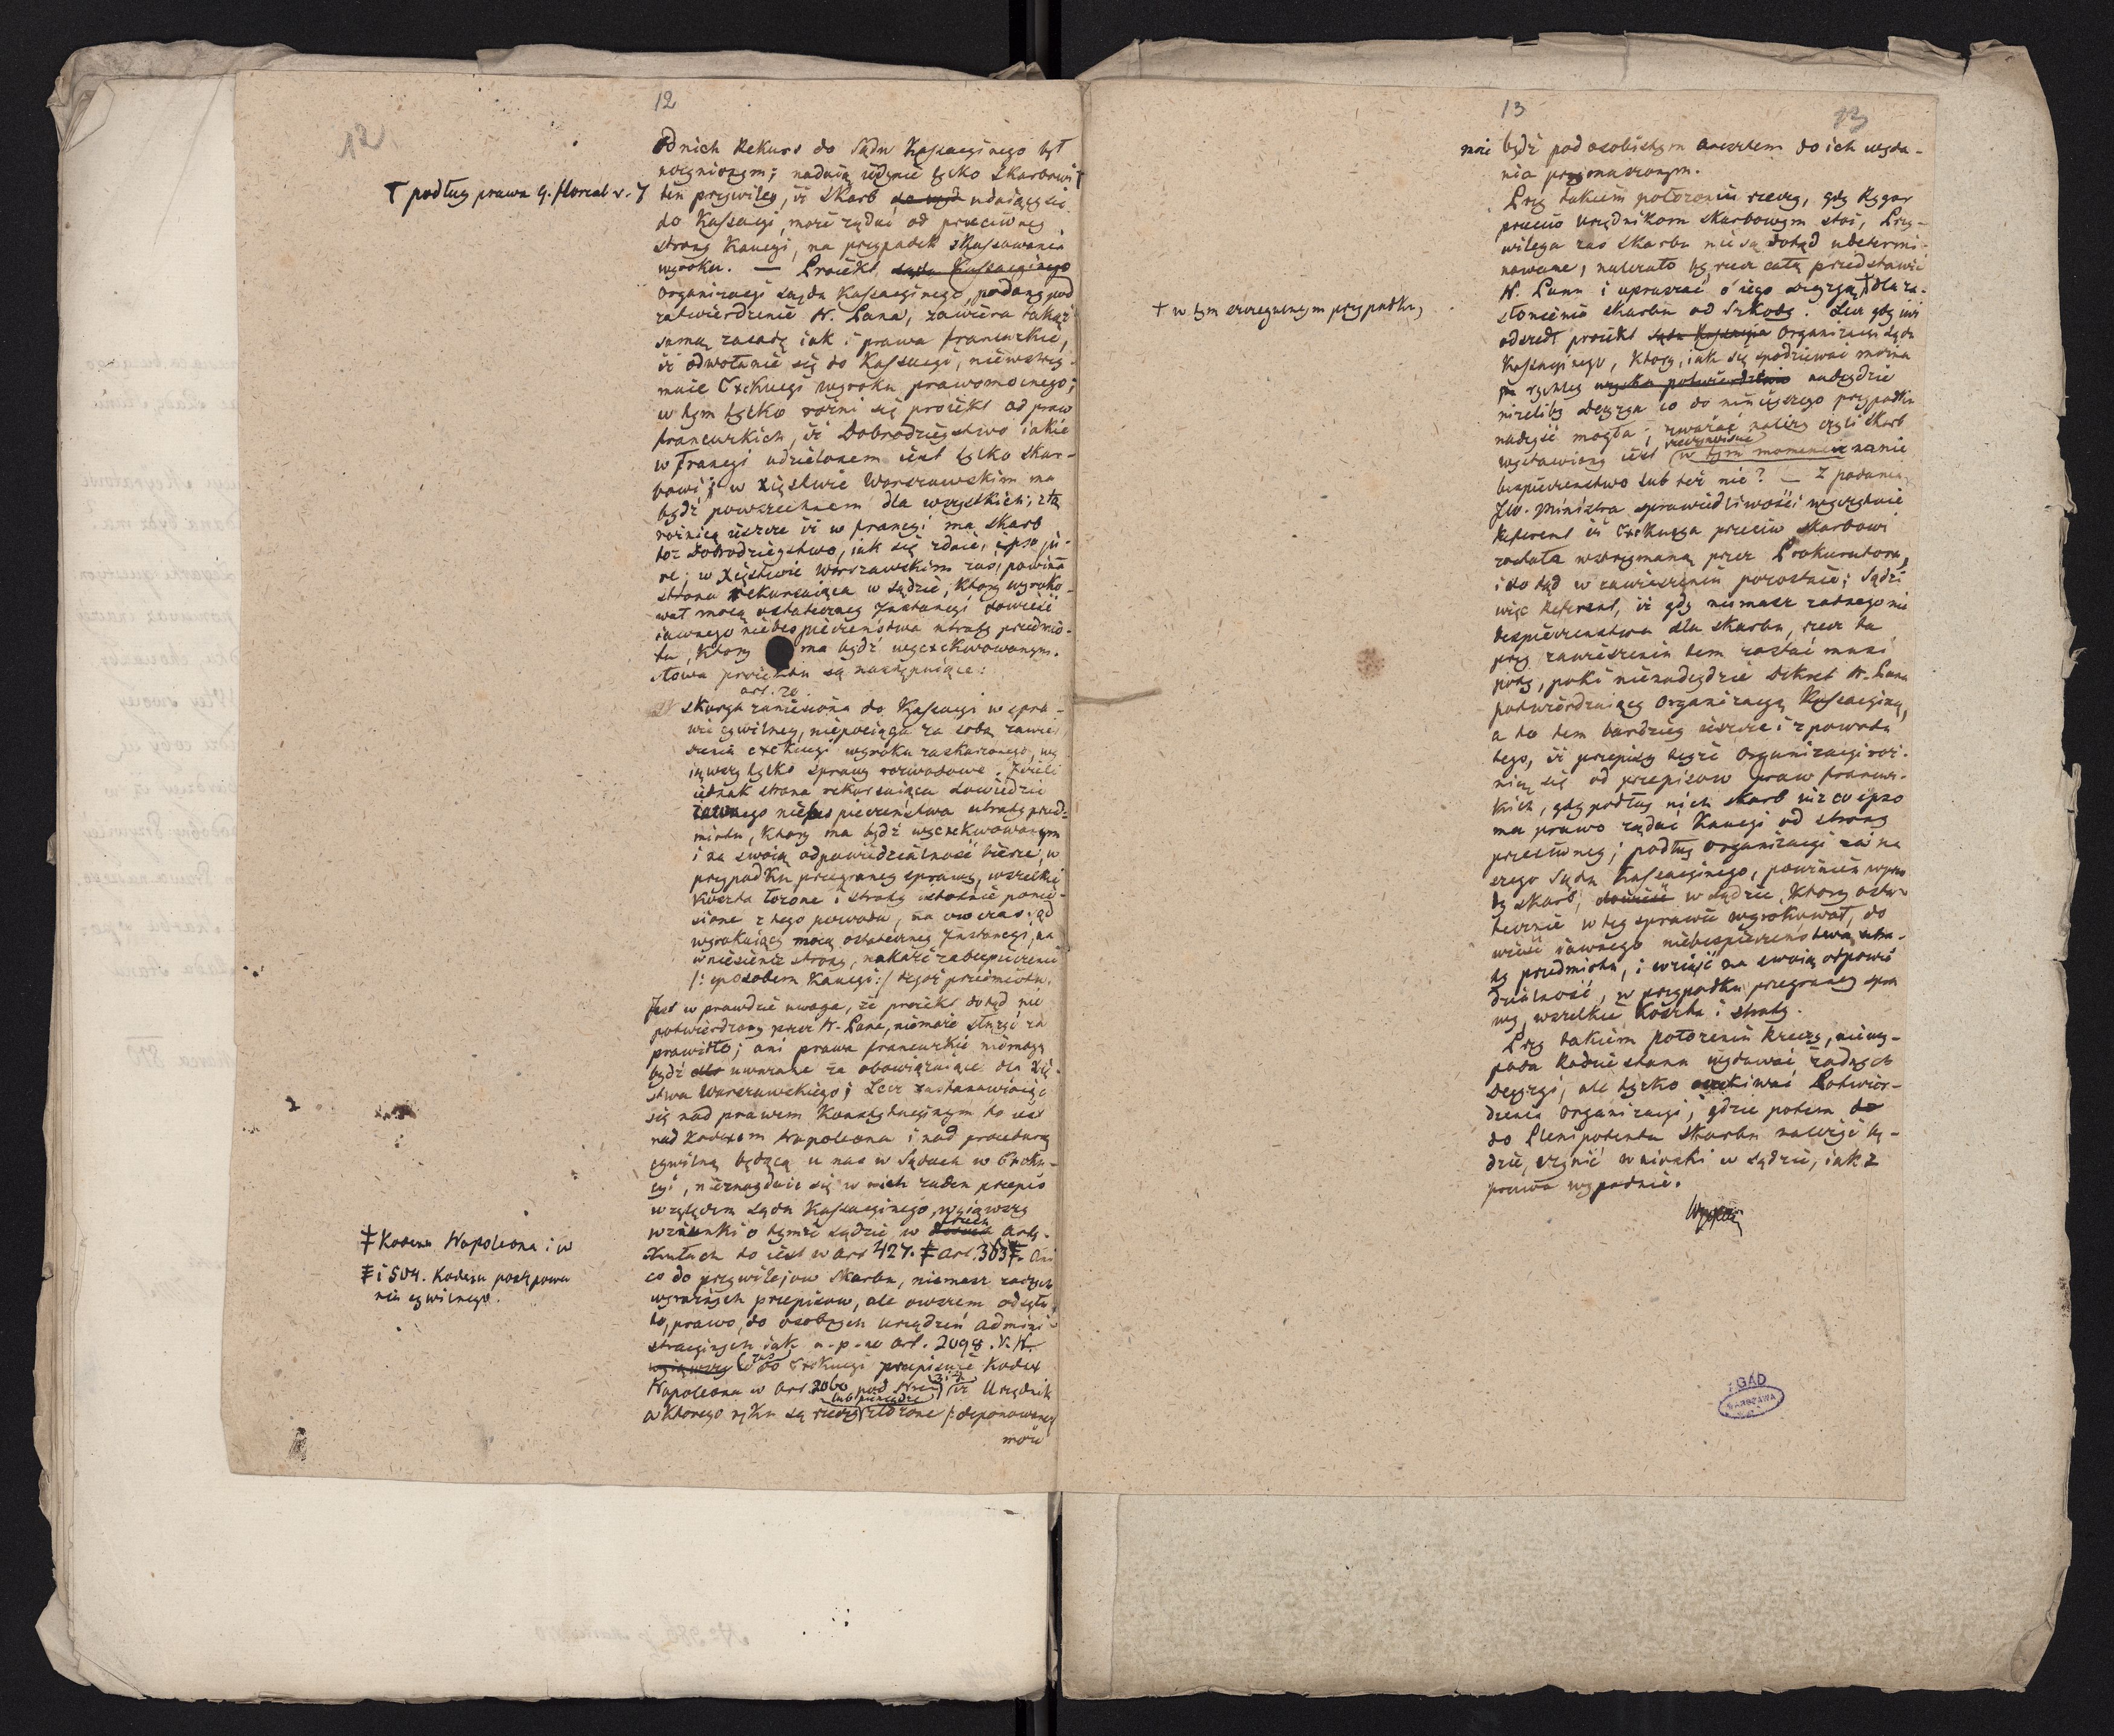 12
12
od nich Rekurs do Sądu Kassacyinego był
uczyniozym; nadaią iedynie tylko Skarbowi †
† podług prawa 4. floreal r. 7
ten przywiley, iż Skarb udaiący się
do Kassacyi, może żądać od przeciwney
strony Kaucyi, na przypadek skassowania
wyroku. — Proiekt sądu Kassacyinego
organizacyi sądu Kassacyinego, podany pod
zatwierdzenie N. Pana, zawiera takąż
samą zasadę iak i prawa francuzkie,
iż odwołanie się do Kassacyi, niewstrzy-
muie Exekucyi wyroku prawomocnego;
w tym tylko rożni się proiekt od praw
francuzkich, iż Dobrodzieystwo iakie
w Francyi udzielonem iest tylko Skar-
bowi; w Xięstwie Warszawskim ma
bydź powszechnem dla wszystkich; z tą
rożnicą ieszcze iż w francyi ma Skarb
toż Dobrodzieystwo, iak się zdaie, ipso ju-
re; w Xięstwie Warszawskim zaś, powinna
strona rekursuiąca w sądzie, ktory wyroko-
wał mocą ostateczney Instancyi dowieść
iawnego niebespieczeństwa utraty przedmio-
tu, ktory ma bydź wyexekwowanym.
Słowa proiektu są następuiące:
art. 20.
Skarga zaniesiona do Kassacyi w spra-
wie cywilney, niepociąga za sobą zawie-
szenia exekucyi wyroku zaskarżonego, wy-
iąwszy tylko sprawy rozwodowe. Jeżeli
iednak strona rekursuiąca dowiedzie
iawnego niebespieczeństwa utraty przed-
miotu, ktory ma bydź wyexekwowanym
i na swoią odpowiedzialność bierze, w
przypadku przegraney sprawy, wszelkie
koszta łożone i straty istotnie ponie-
sione z tego powodu, na owczas sąd
wyrokuiący mocą ostateczney Instancyi, na
wniesienie strony, nakaże zabespieczenie
/: sposobem Kaucyi :/ tegoż przedmiotu.
Jest w prawdzie uwaga, że proiekt dotąd nie
potwierdzony przez N. Pana, niemoże służyć za
prawidło; ani prawa francuzkie niemogą
bydź uważane za obowiązuiące dla Xię-
stwa Warszawskiego; Lecz zastanawiaiąc
się nad prawem Konstytucyinym to iest
nad Kodexem Napoleona i nad procedurą
cywilną będącą u nas w Sądach w Exeku-
cyi, nieznayduie się w nich żaden przepis
względem sądu Kassacyinego, wyiąwszy
wzmianki o tymże sądzie w trzech arty-
kułach to iest w art 427. ‡ art. 363 ‡. Ani
‡ Kodexu Napoleona i w
‡ i 504. Kodexu postępowa
nia cywilnego.
co do przywileiow Skarbu, niemasz żadnych
wyraźnych przepisow, ale owszem odsyła
to, prawo, do osobnych urządzeń admini-
stracyinych iak n. p. w art. 2098. K. N.
wyiąwszy Co do zaś Exekucyi przepisuie Kodex
Napoleona w art 2060 pod Nrem 3im iż Urzędnik
u ktorego ręku są rzeczy lub pieniądze złożone /: deponowane
może
13
13
może bydź pod osobistym aresztem do ich wyda-
nia przymuszonym.
Przy takiem położeniu rzeczy, gdy Rygor
przeciw Urzędnikom Skarbowym stoi, Przy-
wileya zaś Skarbu nie są dotąd udetermi-
nowane, należało by rzecz całą przedstawić
N. Panu i upraszać o iego decyzyą † dla za-
† w tym szczegulnym przypadku,
słonienia Skarbu od Szkody. Lecz gdy iuż
odszedł proiekt sądu Kassacyi organizacyi sądu
Kassacyinego, ktory, iak się spodziewać można
rychley uzyska potwierdzenie nadeydzie
niżeliby decyzya co do ninieyszego przypadku
nadeyść mogła; zważać należy czyli Skarb
wystawiony iest rzeczywiście w tym momencie na nie
bespieczeństwo lub też nie? — Z podania
JW. Ministra sprawiedliwości wyczytuie
Referent iż Exekucya przeciw Skarbowi
została wstrzymaną przez Prokuratora,
i do tąd w zawieszeniu pozostaie; Sądzi
więc Referent, iż gdy niemasz żadnego nie
bespieczeństwa dla Skarbu, rzecz ta
przy zawieszeniu tem zostać musi
poty, poki nienadeydzie Dekret N. Pana
potwierdzaiący organizacyą Kassacyiną,
a to tem bardziey ieszcze i z powodu
tego, iż przepisy teyże organizacyi roż-
nią się od przepisow praw francuz-
kich, gdy podług nich Skarb iuż eo ipso
ma prawo żądać Kaucyi od strony
przeciwney; podług organizacyi zaś na
szego Sądu Kassacyinego, powinien wprzo
dy Skarb, dowieść w sądzie, ktory osta-
tecznie w tey sprawie wyrokował, do
wieść iawnego niebespieczeństwa utra-
ty przedmiotu, i wziąść na swoią odpowie
dzialność, w przypadku przegraney spra
wy, wszelkie koszta i straty.
Przy takiem położeniu rzeczy, niewy-
pada Radzie stanu wydawać żadnych
decyzyi, ale tylko oczekiwać Potwier-
dzenia organizacyi; gdzie potem do
do Plenipotenta Skarbu należeć bę-
dzie, czynić wnioski w sądzie, iak z
prawa wypadnie.
AGAD
WARSZAWA